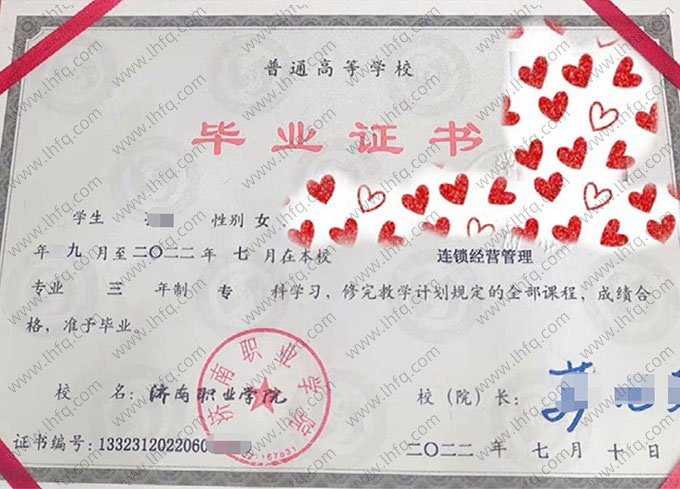 普通高等学校
毕业证书
学生 性别 女
年 九 月至二〇二二年 七 月在本校 连锁经营管理
专业 三 年制 专 科学习，修完教学计划规定的全部课程，成绩合
格，准予毕业。
校 名：济南职业学院 校（院）长：
济南职业学院
证书编号：1332312022060
二〇二二 年 七 月 十 日
www.lhfq.com